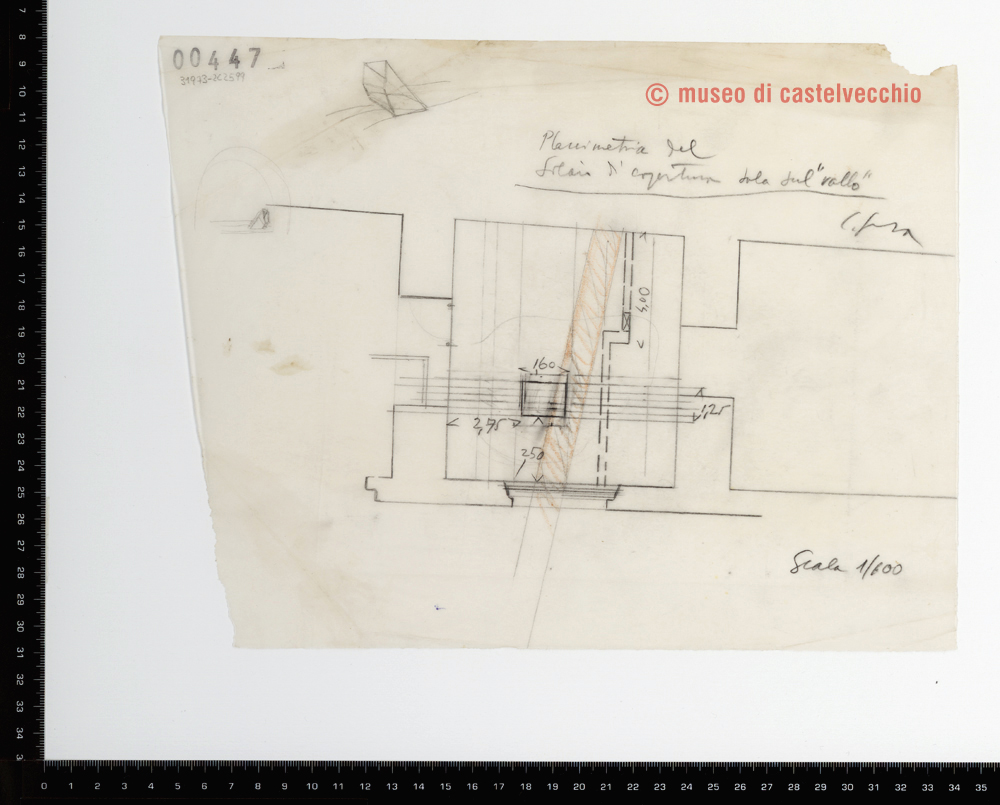 00447
31973-2C2599
© museo di castelvecchio
Planimetria del
Solaio di copertura sala sul "vallo"
4,00
160
1,25
2,75
250
Scala 1/100
7
8
9
10
11
12
13
14
15
16
17
18
19
20
21
22
23
24
25
26
27
28
29
30
31
32
33
34
0 1 2 3 4 5 6 7 8 9 10 11 12 13 14 15 16 17 18 19 20 21 22 23 24 25 26 27 28 29 30 31 32 33 34 35